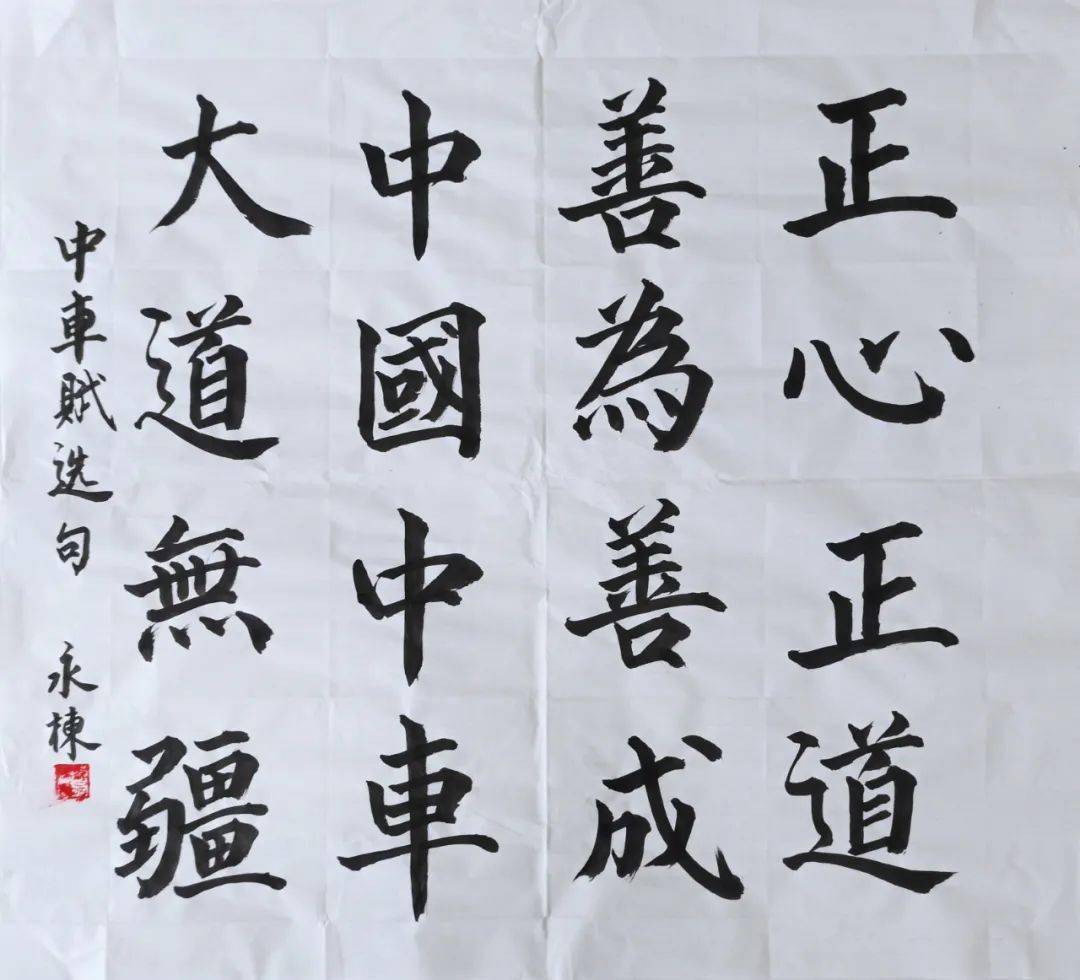 正心正道
善為善成
中國中車
大道無疆
中車賦选句 永棟